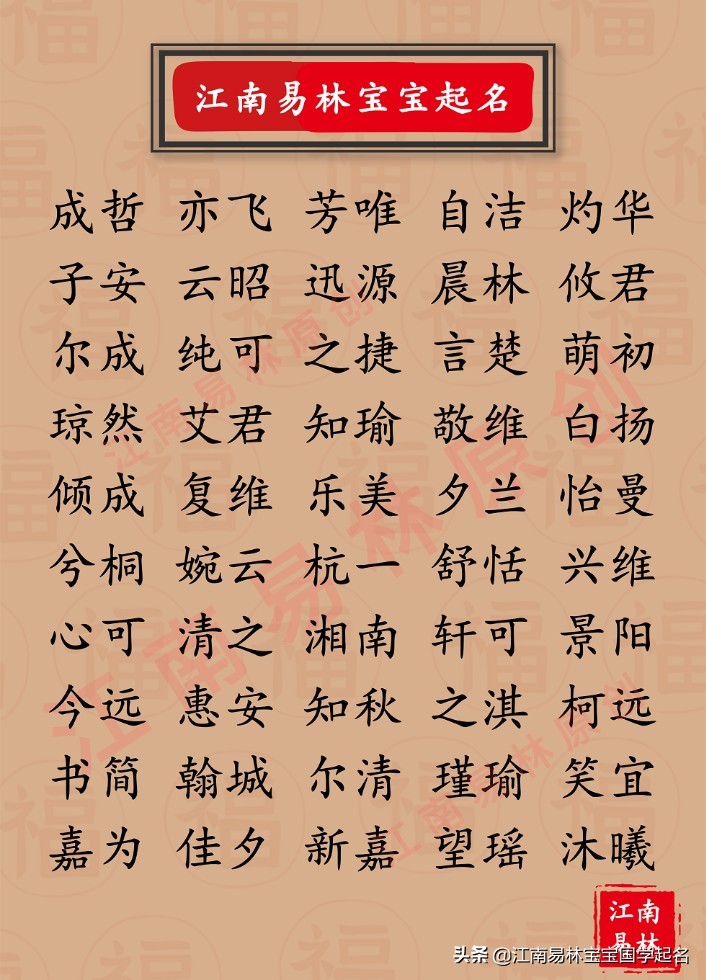 江南易林宝宝起名
成哲 亦飞 芳唯 自洁 灼华
子安 云昭 迅源 晨林 攸君
尔成 纯可 之捷 言楚 萌初
琼然 艾君 知瑜 敬维 白扬
倾成 复维 乐美 夕兰 怡曼
兮桐 婉云 杭一 舒恬 兴维
心可 清之 湘南 轩可 景阳
今远 惠安 知秋 之淇 柯远
书简 翰城 尔清 瑾瑜 笑宜
嘉为 佳夕 新嘉 望瑶 沐曦
江南易林原创
江南易林原创
江南易林原创
江南
易林
头条 @江南易林宝宝国学起名